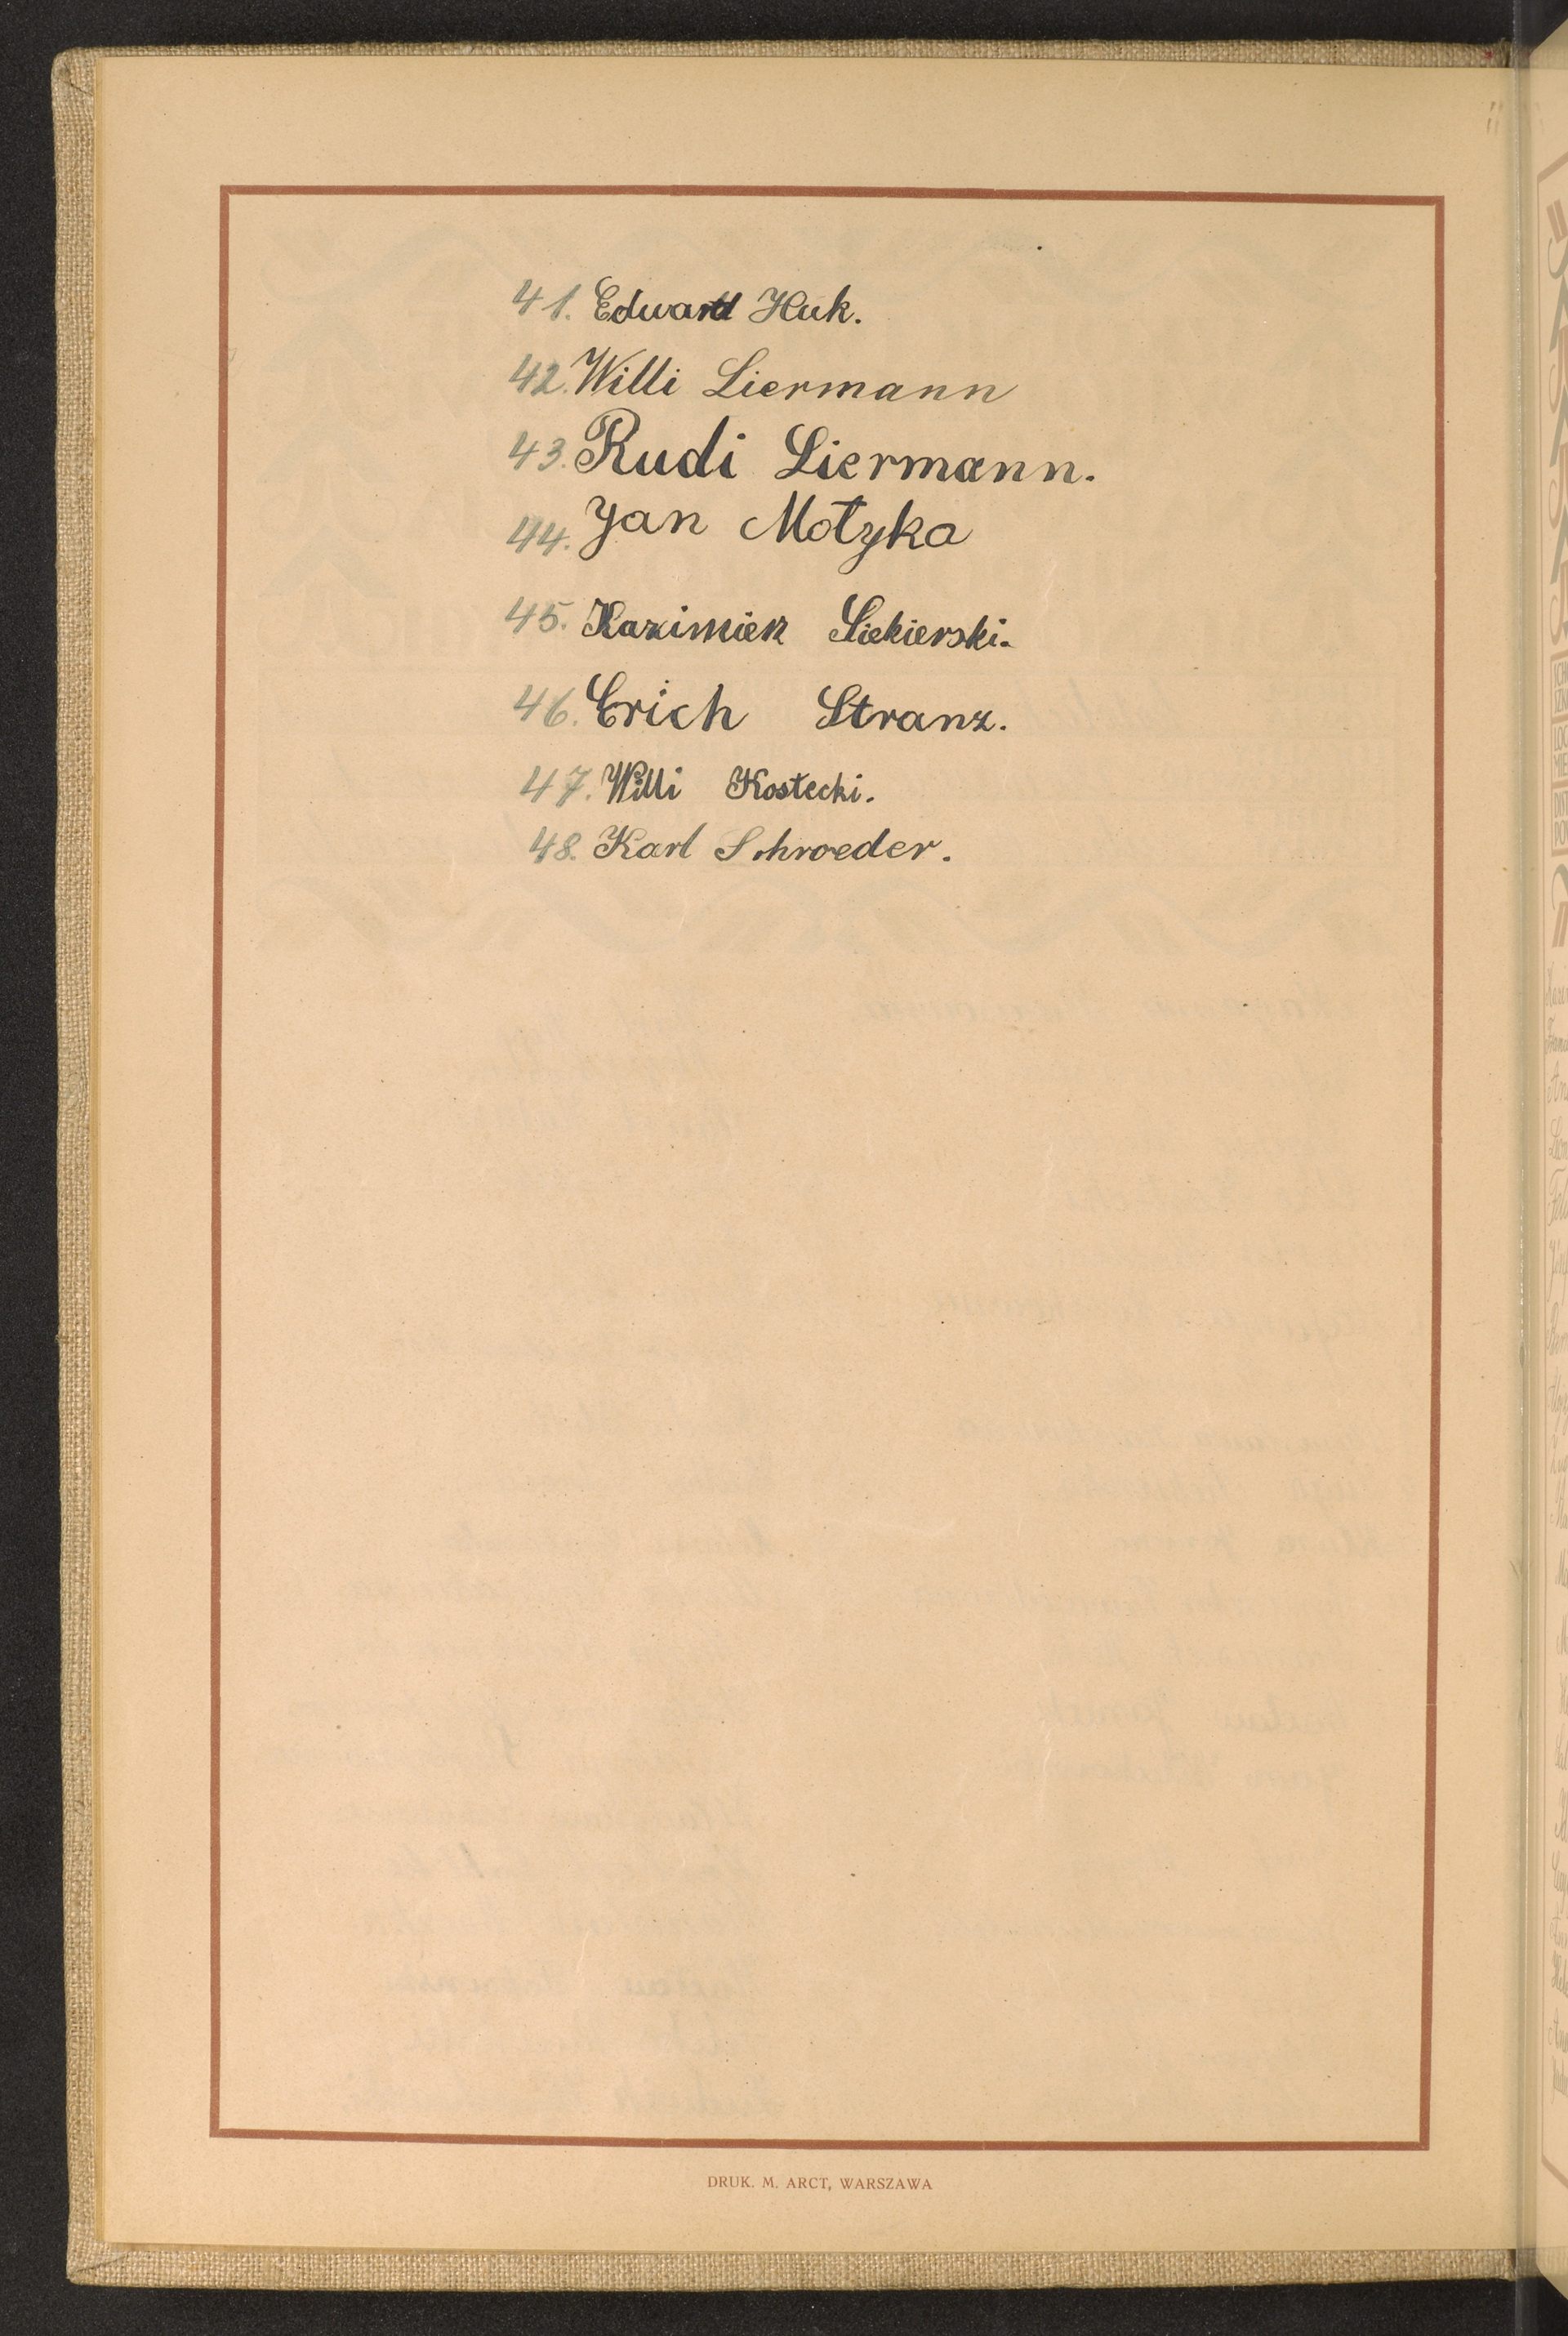 41. Edward Huk.
42. Willi Liermann
43. Rudi Liermann.
44. Jan Motyka
45. Kazimierz Siekierski.
46. Erich Stranz.
47. Willi Kostecki.
48. Karl Schroeder.
DRUK. M. ARCT, WARSZAWA